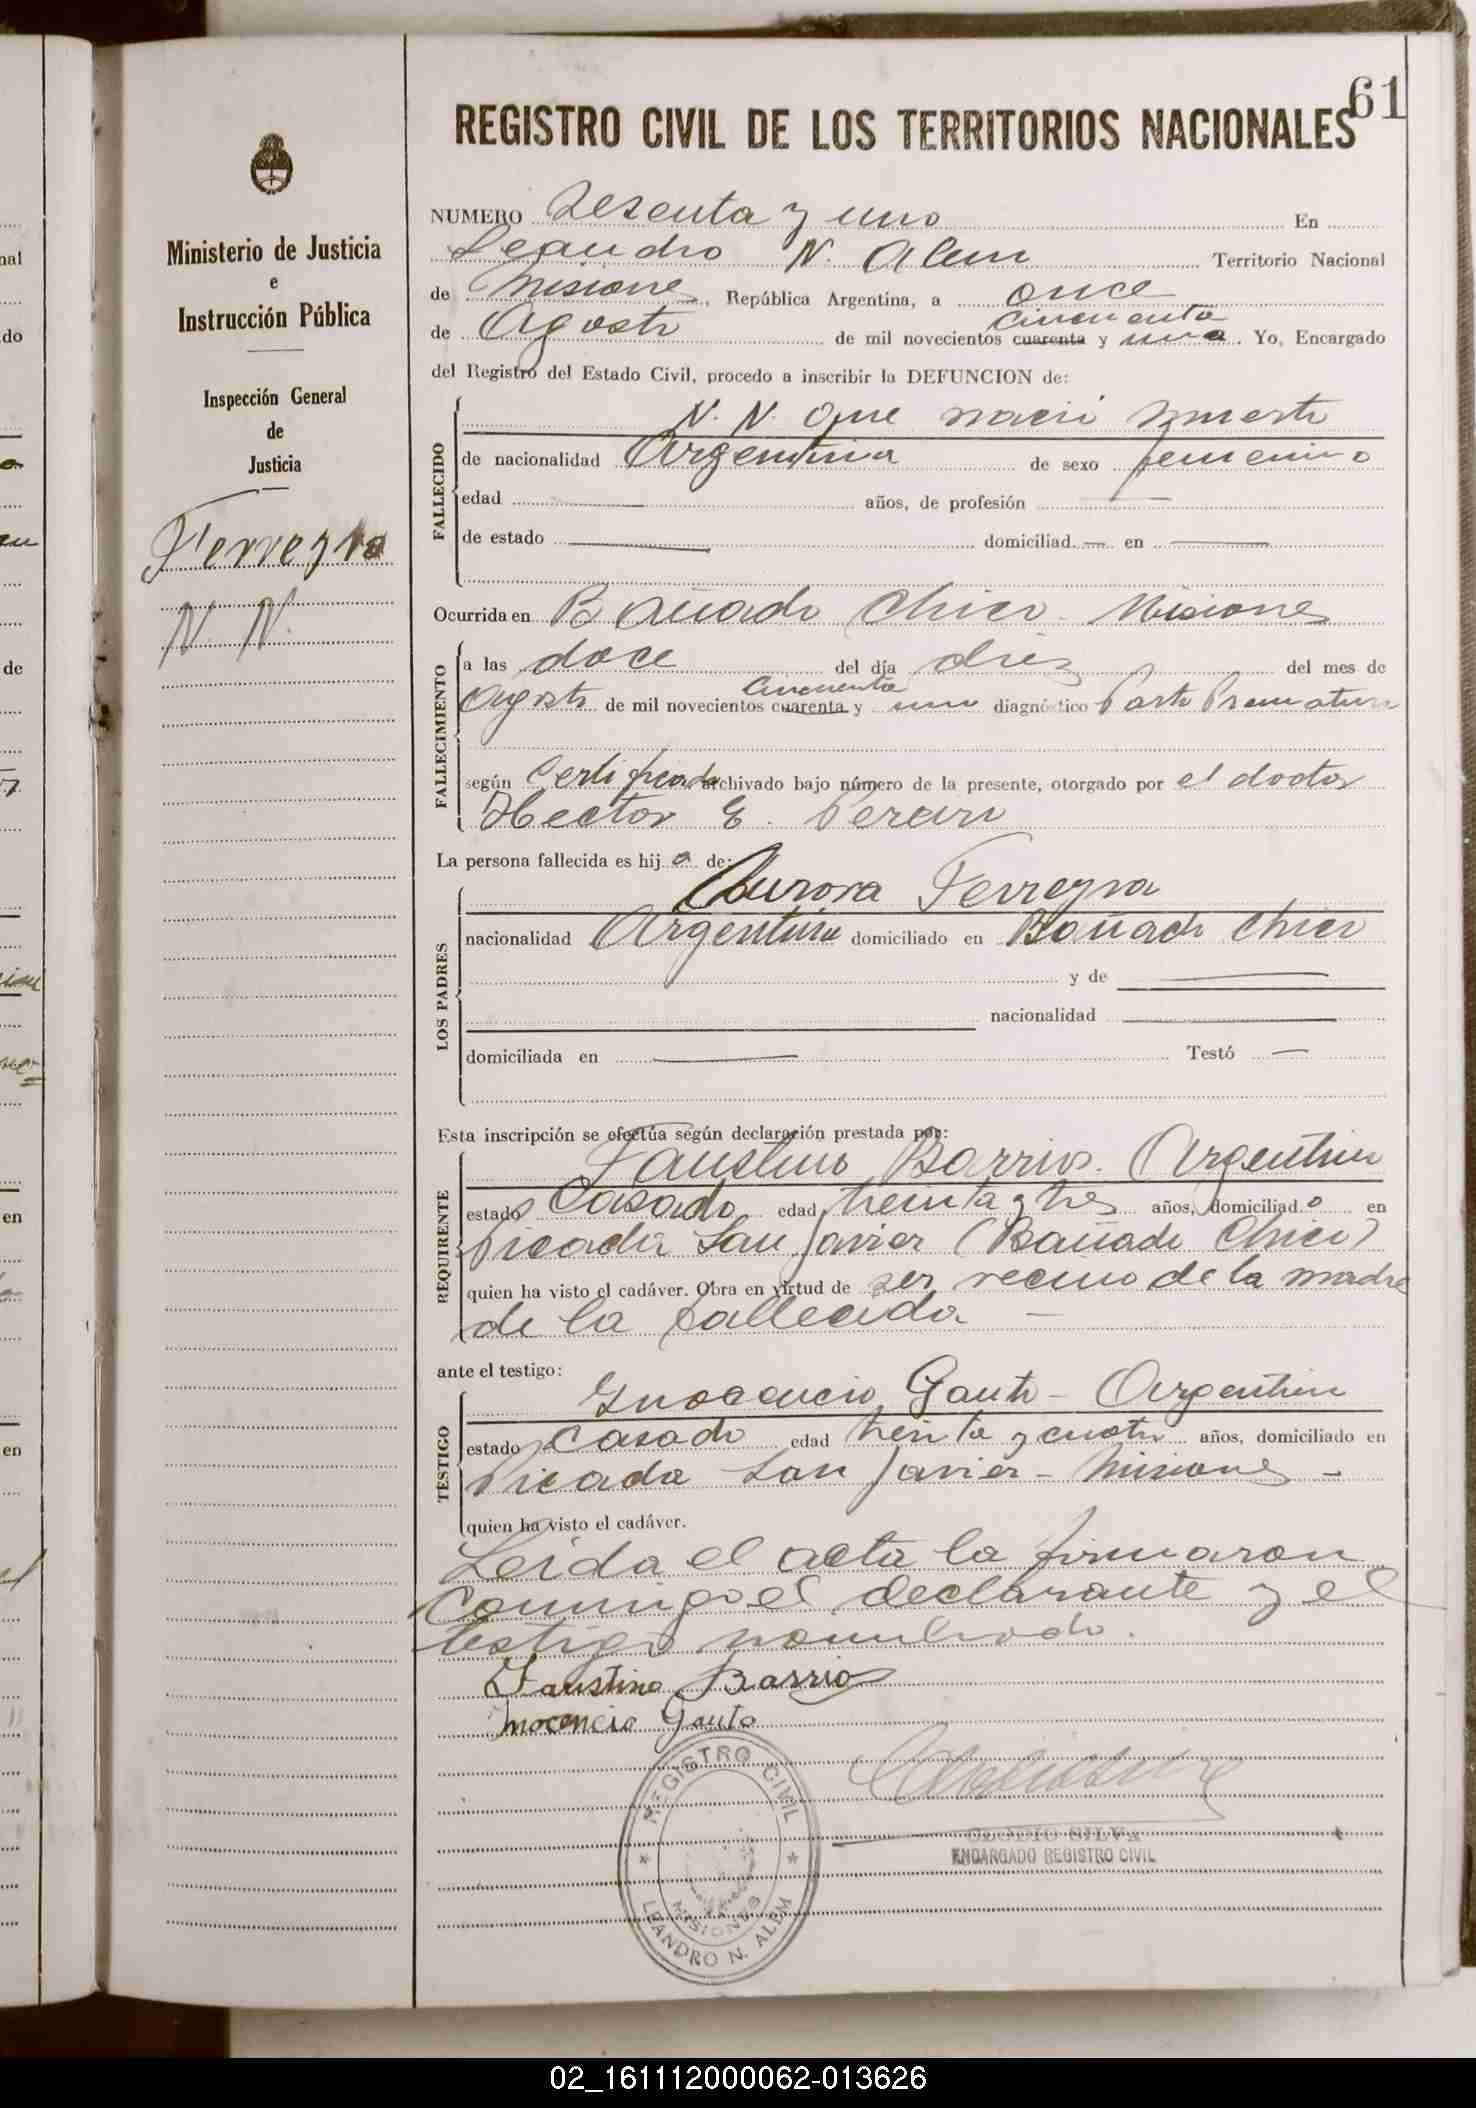 61
REGISTRO CIVIL DE LOS TERRITORIOS NACIONALES
Ministerio de Justicia
e
Instrucción Pública
Inspección General
de
Justicia
Ferreyra
N. N.
NUMERO Sesenta y uno En
Leandro N. Alem Territorio Nacional
de Misiones, República Argentina, a once
cincuenta
de Agosto de mil novecientos cuarenta y uno. Yo, Encargado
del Registro del Estado Civil, procedo a inscribir la DEFUNCION de:
FALLECIDO
N. N. que nació muerta
de nacionalidad Argentina de sexo femenino
edad — años, de profesión —
de estado — domiciliad — en —
Ocurrida en Bañado Chico - Misiones
FALLECIMIENTO
a las doce del día diez del mes de
cincuenta
Agosto de mil novecientos cuarenta y uno diagnóstico Parto Prematuro
según Certificado archivado bajo número de la presente, otorgado por el doctor
Hector E.
La persona fallecida es hija de:
LOS PADRES
Aurora Ferreyra
nacionalidad Argentina domiciliado en Bañado Chico
y de —
nacionalidad —
domiciliada en — Testó —
Esta inscripción se efectúa según declaración prestada por:
REQUIRENTE
Faustino Barrios. Argentino
estado Casado edad treinta y tres años, domiciliado en
Picada San Javier (Bañado Chico)
quien ha visto el cadáver. Obra en virtud de ser vecino de la madre
de la fallecida —
ante el testigo:
TESTIGO
Inocencio Gauto - Argentino
estado Casado edad treinta y cuatro años, domiciliado en
Picada San Javier - Misiones -
quien ha visto el cadáver.
Leida el acta la firmaron
conmigo el declarante y el
testigo nombrado.
Faustino Barrios
Inocencio Gauto
REGISTRO CIVIL
MISIONES
LEANDRO N. ALEM
SILVA
ENCARGADO REGISTRO CIVIL
02_161112000062-013626